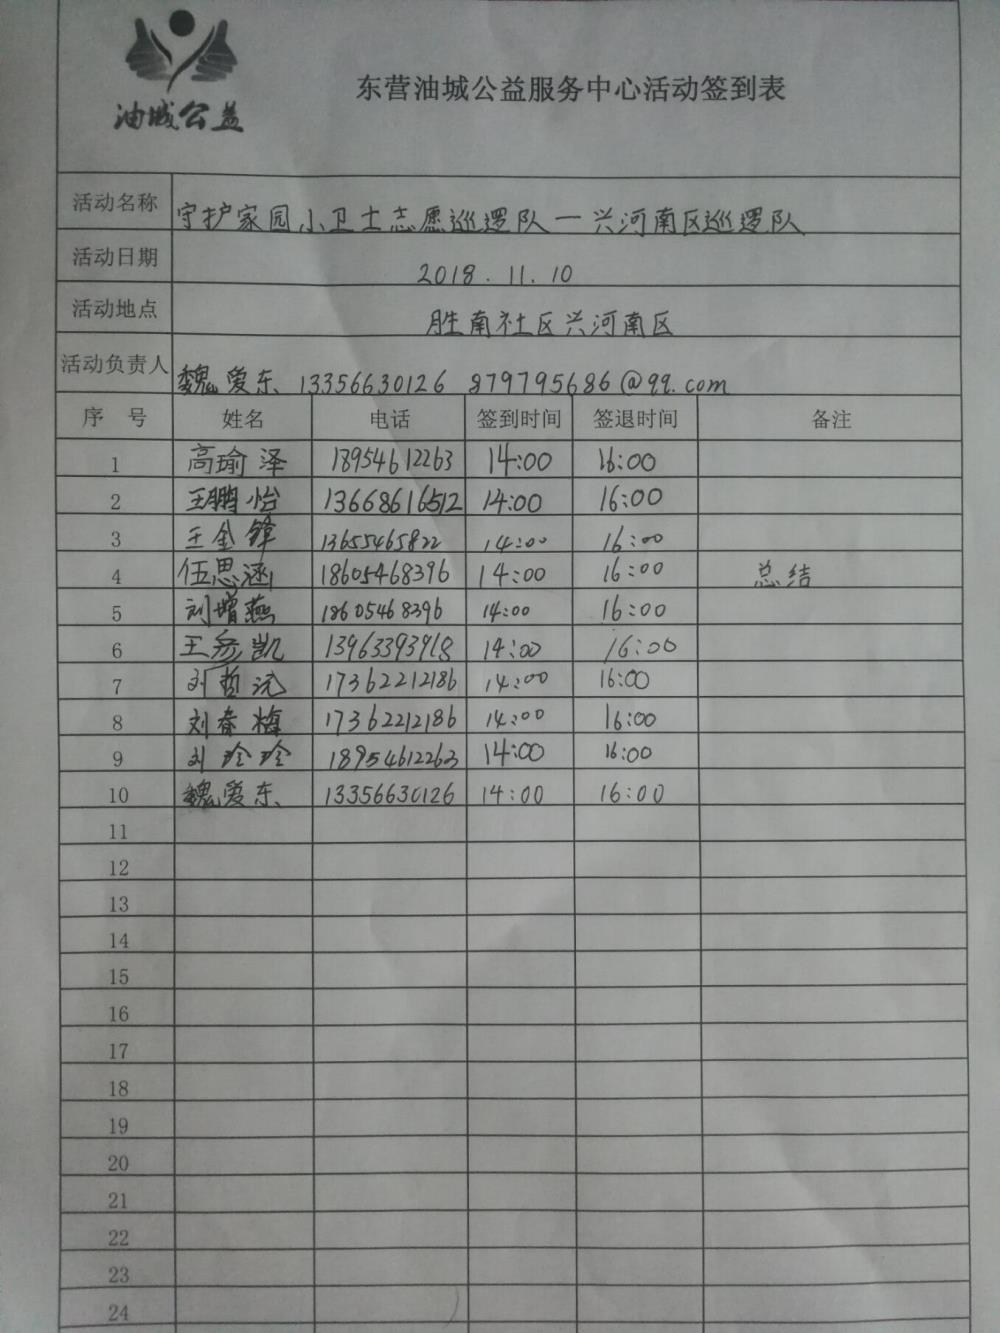 油城公益
东营油城公益服务中心活动签到表
活动名称 守护家园小卫士志愿巡逻队—兴河南区巡逻队
活动日期 2018.11.10
活动地点 胜南社区兴河南区
活动负责人 魏爱东 13356630126 879795686@qq.com
序 号 姓名 电话 签到时间 签退时间 备注
1 高瑜泽 18954612263 14:00 16:00
2 王鹏怡 13668616512 14:00 16:00
3 王金锋 13655465822 14:00 16:00
4 伍思涵 18605468396 14:00 16:00 总结
5 刘增燕 18605468396 14:00 16:00
6 王彦凯 13963393918 14:00 16:00
7 刘哲沅 17362212186 14:00 16:00
8 刘春梅 17362212186 14:00 16:00
9 刘玲玲 18954612263 14:00 16:00
10 魏爱东 13356630126 14:00 16:00
11
12
13
14
15
16
17
18
19
20
21
22
23
24